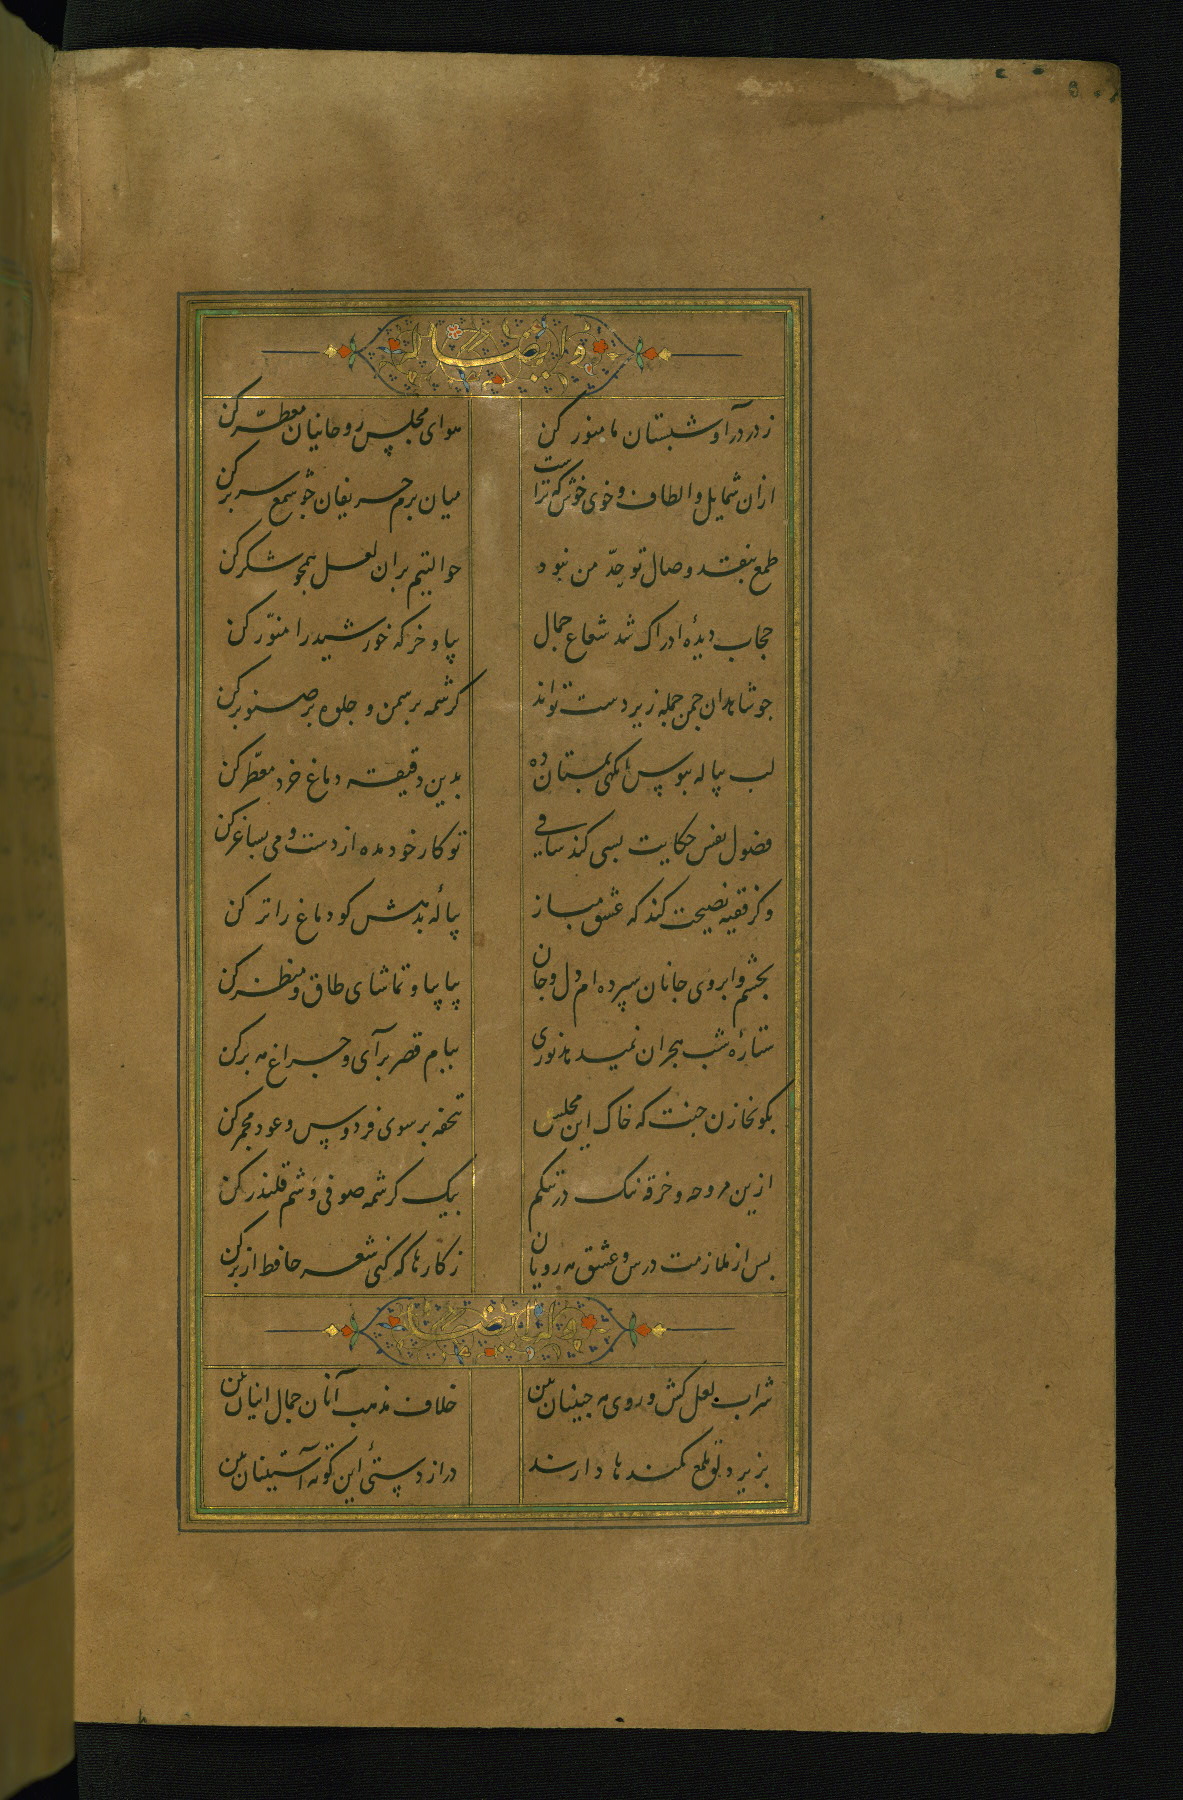 وایضاً له
ز در درآ و شبستان ما منور کن هوای مجلس روحانیان معطّر کن
ازان شمایل و الطاف و خوی خوش که تراست میان بزم حریفان چو شمع سر بر کن
طمع بنقد وصال تو حدّ من نبود حوالتیم بران لعل همچو شکر کن
حجاب دیدۀ ادراک شد شعاع جمال بیا و خرکه خورشید را منوّر کن
جو شاهدان جمن جمله زیر دست تواند کرشمه بر سمن و جلوه بر صنوبر کن
لب پیاله ببوس انکهی بمستان ده بدین دقیقه دماغ خرد معطّر کن
فضول نفس حکایت بسی کند ساقی تو کار خود مده از دست و می بساغر کن
وکر فقیه نصیحت کند که عشق مباز پیالۀ بدهش کو دماغ را تر کن
بچشم و ابروی جانان سپرده ام دل و جان بیا بیا و تماشای طاق و منظر کن
ستارۀ شب هجران نمیدهد نوری ببام قصر برآی و چراغ مه بر کن
بکو بخازن جنت که خاک این مجلس تحفه بر سوی فردوس و عود مجمر کن
ازین مروحه و خرقه نیک در تنکم بیک کرشمه صوفی وشم قلندر کن
پس از ملازمت درس و عشق مه رویان ز کارها که کنی شعر حافظ از بر کن
وله ایضاً
شراب لعل کش و روی مه جبینان بین خلاف مذهب آنان جمال اینان بین
بزیر دلق ملمع کمندها دارند دراز دستئ این کوته آستینان بین